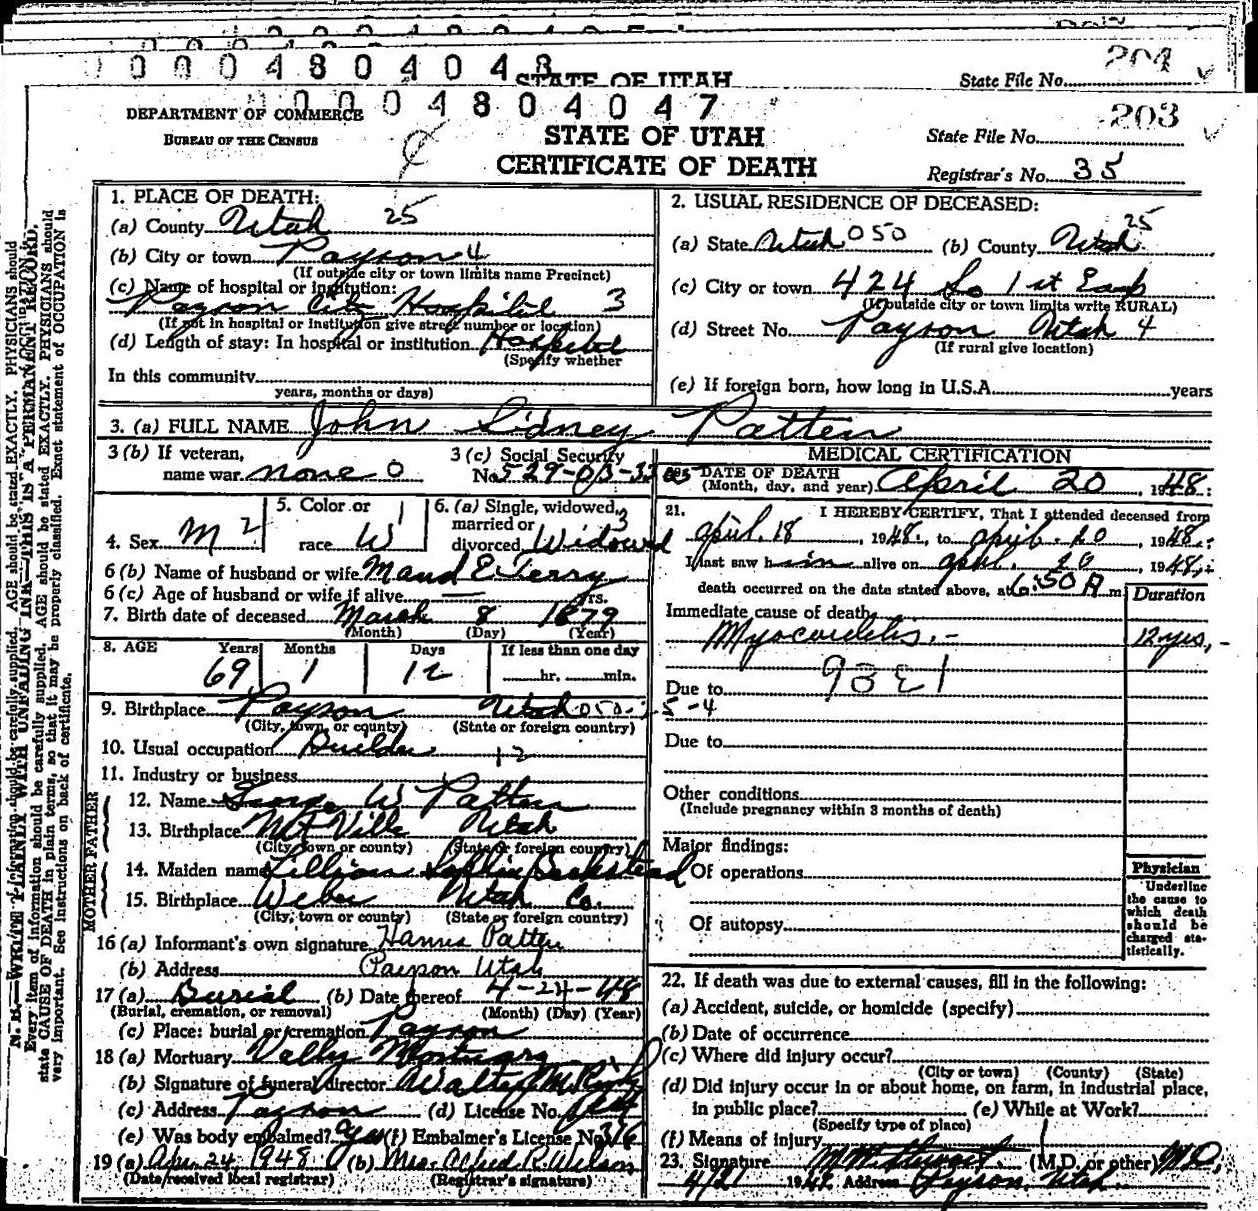 0 0 0 4 8 0 4 0 4 8
STATE OF UTAH
State File No. 204
0 0 0 4 8 0 4 0 4 7
DEPARTMENT OF COMMERCE
BUREAU OF THE CENSUS
STATE OF UTAH
CERTIFICATE OF DEATH
State File No. 203
Registrar's No. 35
N. B.—WRITE PLAINLY WITH UNFADING INK—THIS IS A PERMANENT RECORD.
Every item of information should be carefully supplied. AGE should be stated EXACTLY. PHYSICIANS should
state CAUSE OF DEATH in plain terms, so that it may be properly classified. Exact statement of OCCUPATION is
very important. See instructions on back of certificate.
1. PLACE OF DEATH:
(a) County Utah 25
(b) City or town Payson 4
(If outside city or town limits name Precinct)
(c) Name of hospital or institution:
Payson City Hospital 3
(If not in hospital or institution give street number or location)
(d) Length of stay: In hospital or institution Hospital
(Specify whether
In this community
years, months or days)
2. USUAL RESIDENCE OF DECEASED:
(a) State Utah 050 (b) County Utah 25
(c) City or town 424 So 1st East
(If outside city or town limits write RURAL)
(d) Street No. Payson Utah 4
(If rural give location)
(e) If foreign born, how long in U.S.A. years
3. (a) FULL NAME John Sidney Patten
3 (b) If veteran,
name war none 0
3 (c) Social Security
No. 529-03-
4. Sex M 2
5. Color or
race W 1
6. (a) Single, widowed,
married or
divorced Widowed 3
6 (b) Name of husband or wife Maud E Terry
6 (c) Age of husband or wife if alive — yrs.
7. Birth date of deceased March 8 1879
(Month) (Day) (Year)
8. AGE Years Months Days If less than one day
69 1 12 hr. min.
9. Birthplace Payson Utah 050-25-4
(City, town, or county) (State or foreign country)
10. Usual occupation Builder 12
11. Industry or business
FATHER
12. Name George W Patten
13. Birthplace Mt Ville Utah
(City, town or county) (State or foreign country)
MOTHER
14. Maiden name Lillian Sophia Beckstead
15. Birthplace Weber Utah Co.
(City, town or county) (State or foreign country)
16 (a) Informant's own signature Hannis Patten
(b) Address Payson Utah
17 (a) Burial (b) Date thereof 4-24-48
(Burial, cremation, or removal) (Month) (Day) (Year)
(c) Place: burial or cremation Payson
18 (a) Mortuary Valley Mortuary
(b) Signature of funeral director Walter M
(c) Address Payson (d) License No.
(e) Was body embalmed? yes (f) Embalmer's License No. 316
19 (a) Apr. 24, 1948 (b) Mrs. Alfred R. Wilson
(Date received local registrar) (Registrar's signature)
MEDICAL CERTIFICATION
20. DATE OF DEATH
(Month, day, and year) April 20, 1948
21. I HEREBY CERTIFY, That I attended deceased from
April. 18, 1948, to April. 20 1948
I last saw him alive on April. 20 1948
death occurred on the date stated above, at 6:50 A m. Duration
Immediate cause of death
Myocarditis.- 12 yrs,-
Due to 93E1
Due to
Other conditions
(Include pregnancy within 3 months of death)
Major findings:
Of operations
Of autopsy
Physician
Underline
the cause to
which death
should be
charged sta-
tistically.
22. If death was due to external causes, fill in the following:
(a) Accident, suicide, or homicide (specify)
(b) Date of occurrence
(c) Where did injury occur?
(City or town) (County) (State)
(d) Did injury occur in or about home, on farm, in industrial place,
in public place? (e) While at Work?
(Specify type of place)
(f) Means of injury
23. Signature M W Stewart. (M.D. or other) M.D.
4/21 1948 Address Payson, Utah.